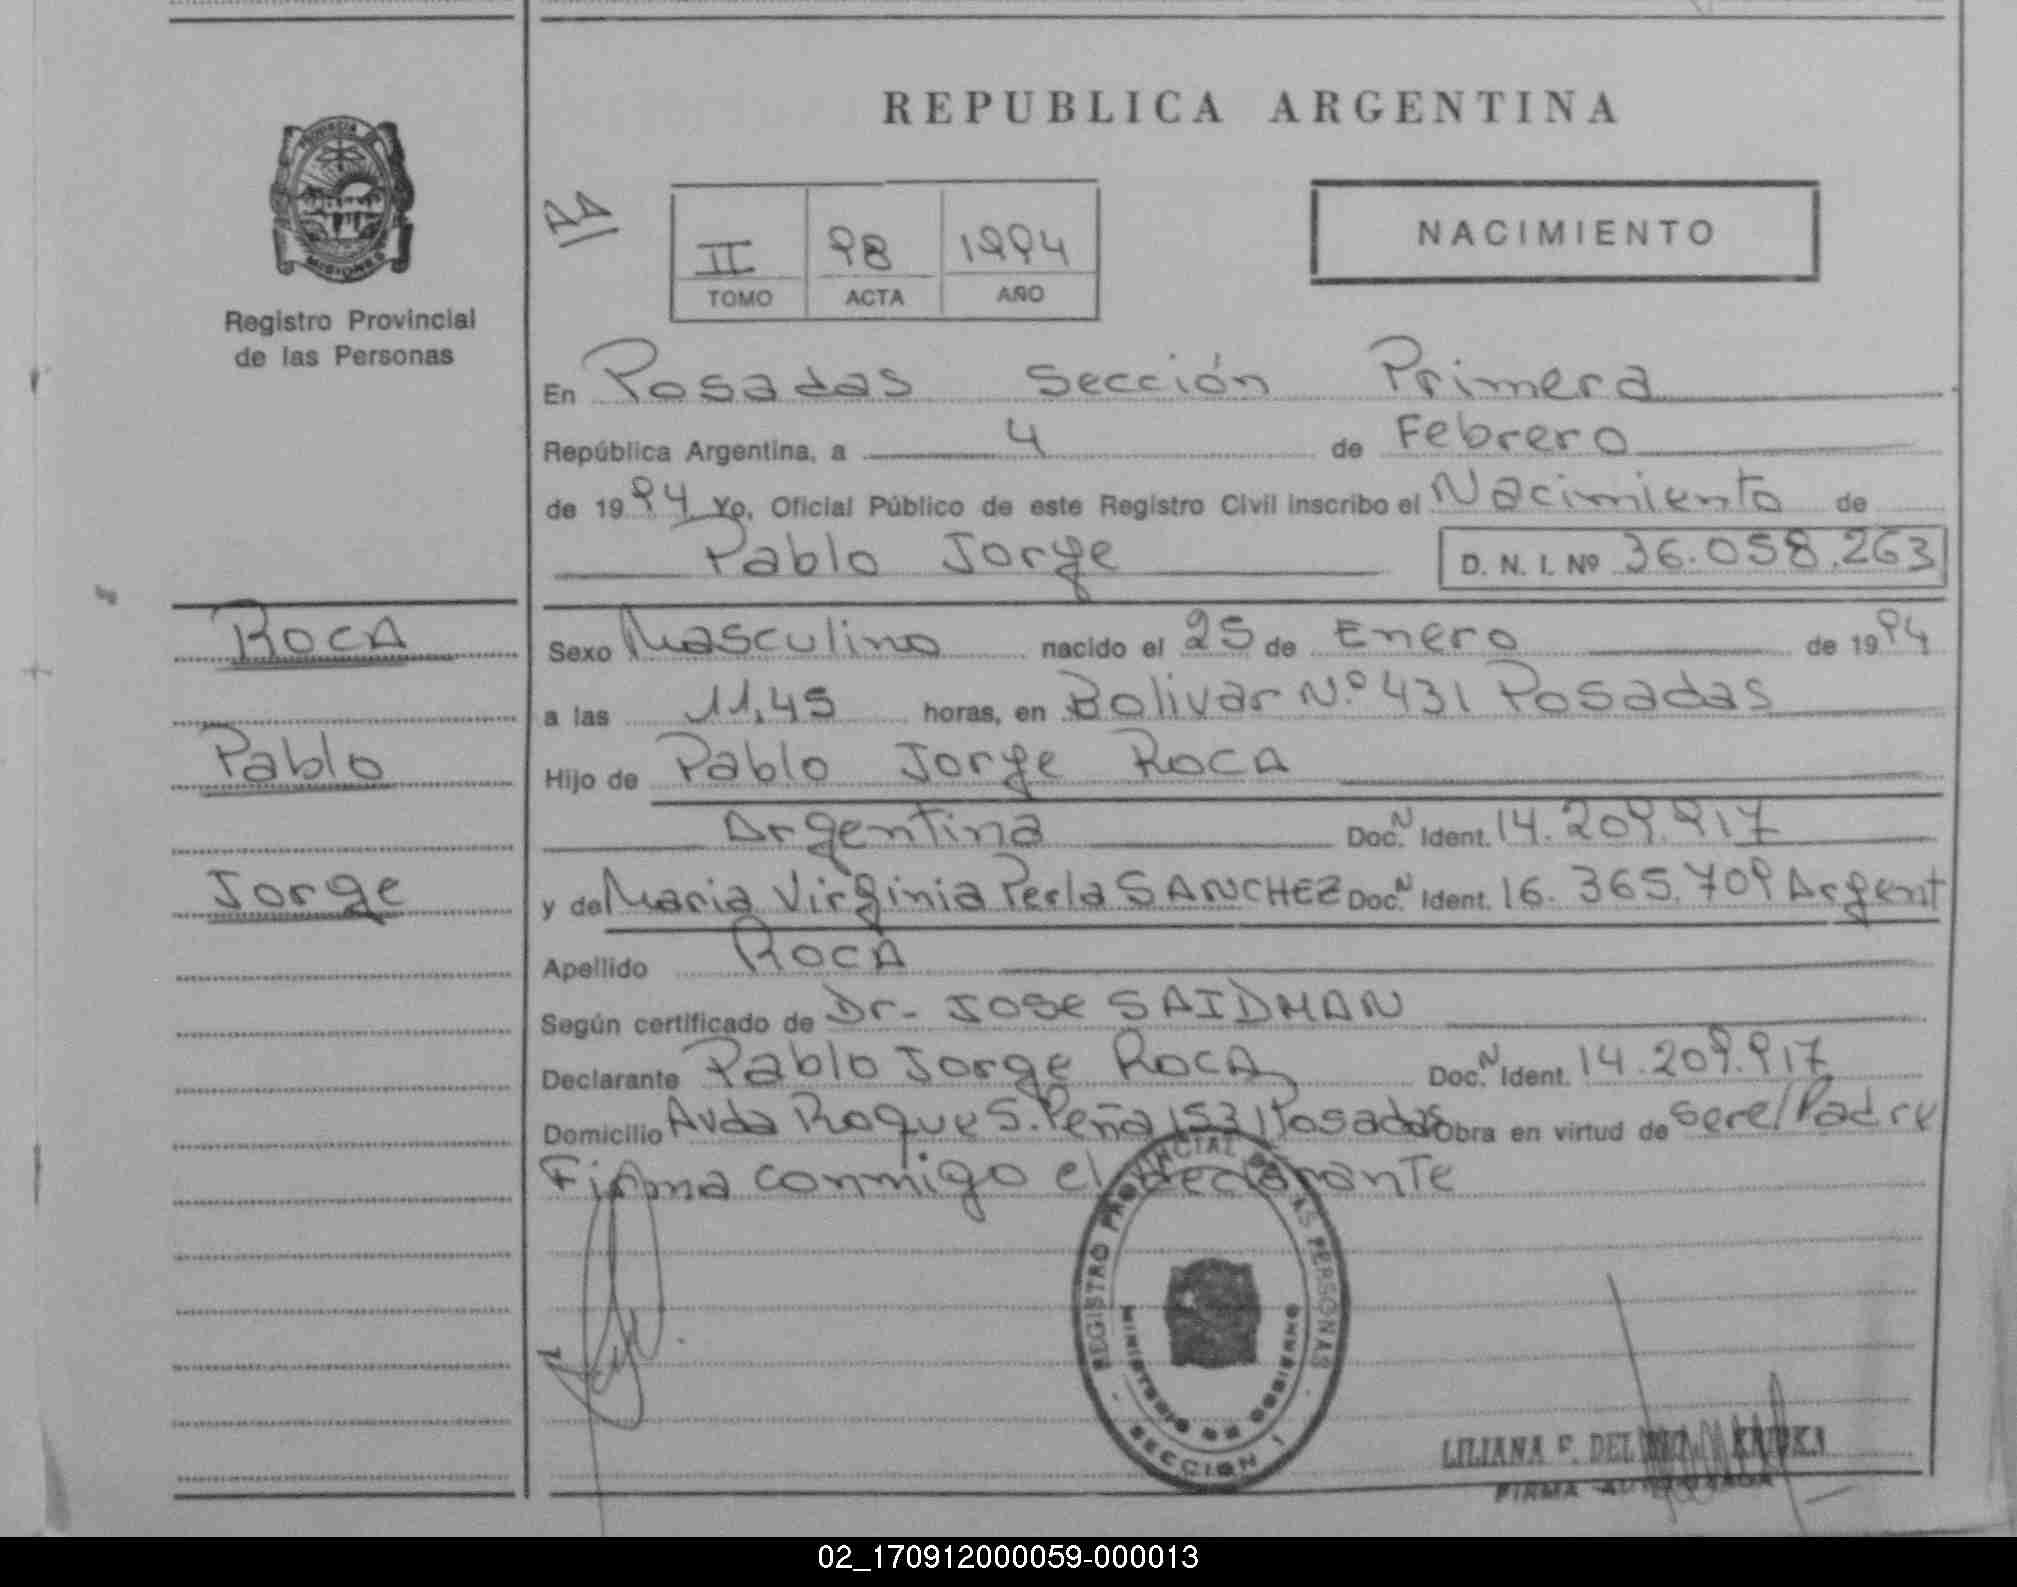 REPUBLICA ARGENTINA
PROVINCIA DE
MISIONES
Registro Provincial
de las Personas
II 98 1994
TOMO ACTA AÑO
NACIMIENTO
En Posadas Sección Primera
República Argentina, a 4 de Febrero
de 1994 Yo, Oficial Público de este Registro Civil inscribo el Nacimiento de
Pablo Jorge D. N. I. Nº 36.058.263
ROCA
Sexo Masculino nacido el 25 de Enero de 1994
a las 11,45 horas, en Bolivar Nº 431 Posadas
Pablo
Hijo de Pablo Jorge ROCA
Argentina Doc. N Ident. 14.209.917
Jorge
y de Maria Virginia Perla SANCHEZ Doc. N Ident. 16.365.709 Argent
Apellido ROCA
Según certificado de Dr. JOSE SAIDMAN
Declarante Pablo Jorge ROCA Doc. N Ident. 14.209.917
Domicilio Avda Roque S. Peña 1531 Posadas Obra en virtud de ser el Padre
Firma conmigo el declarante
REGISTRO PROVINCIAL DE LAS PERSONAS
MINISTERIO DE GOBIERNO
- SECCION 1 -
LILIANA F. DEL
FIRMA AUTORIZADA
02_170912000059-000013